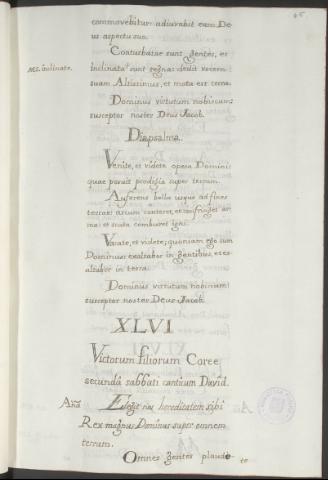 45
commovebitur: adiuvabit eam De-
us aspectu suo.
Conturbatae sunt gentes, et
MS. ĩnclinate. inclinata sunt regna: dedit vocem
suam Altissimus, et mota est terra.
Dominus virtutum nobiscum:
susceptor noster Deus Jacob.
Diapsalma.
Venite, et videte opera Domini:
quae posuit prodigia super terram.
Auferens bella usque ad fines
terrae: arcum conteret, et confringet ar-
ma: et scuta comburet igni.
Vacate, et videte; quoniam ego sum
Dominus: exaltabor in gentibus, et ex-
altabor in terra.
Dominus virtutum nobiscum:
susceptor noster Deus Jacob.
XLVI
Victorum filiorum Coree,
secundâ sabbati canticum David.
Añã Elegit nos hereditatem sibi
Rex magnus Dominus super omnem
terram.
Omnes gentes plaudi-
te